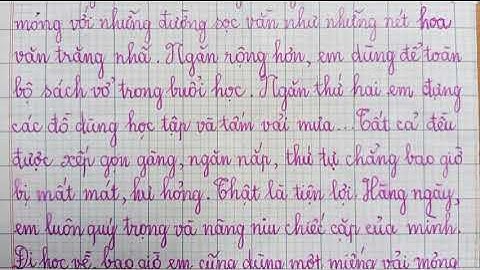 mỏng với những đường sọc vằn như những nét hoa
văn trang nhã. Ngăn rộng hơn, em dùng để toàn
bộ sách vở trong buổi học. Ngăn thứ hai em đựng
các đồ dùng học tập và tấm vải mưa... Tất cả đều
được xếp gọn gàng, ngăn nắp, thứ tự chẳng bao giờ
bị mất mát, hư hỏng. Thật là tiện lợi. Hằng ngày,
em luôn quý trọng và nâng niu chiếc cặp của mình.
Đi học về, bao giờ em cũng dùng một miếng vải mỏng